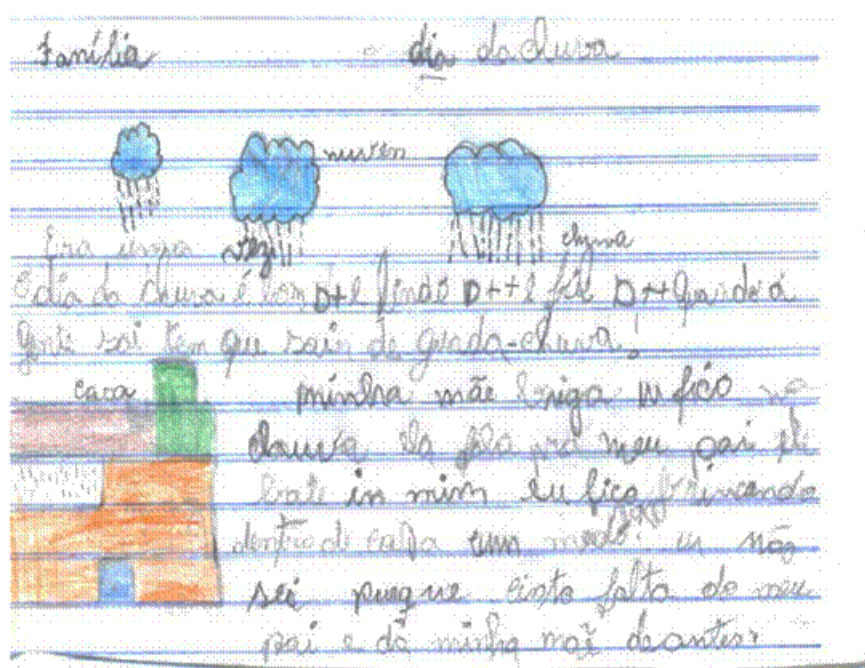 Família dia da chuva
nuvem
Era uma vez chuva
O dia da chuva é bom D+ é lindo D++ é D++ quando a
gente sai tem que sair de guada-chuva!
casa minha mãe briga eu fico na
chuva ela fala pra meu pai ele
bate in mim eu fico brincando
dentro de casa com medo! eu não
sei purque sinto falta do meu
pai e da minha mãe de antes.